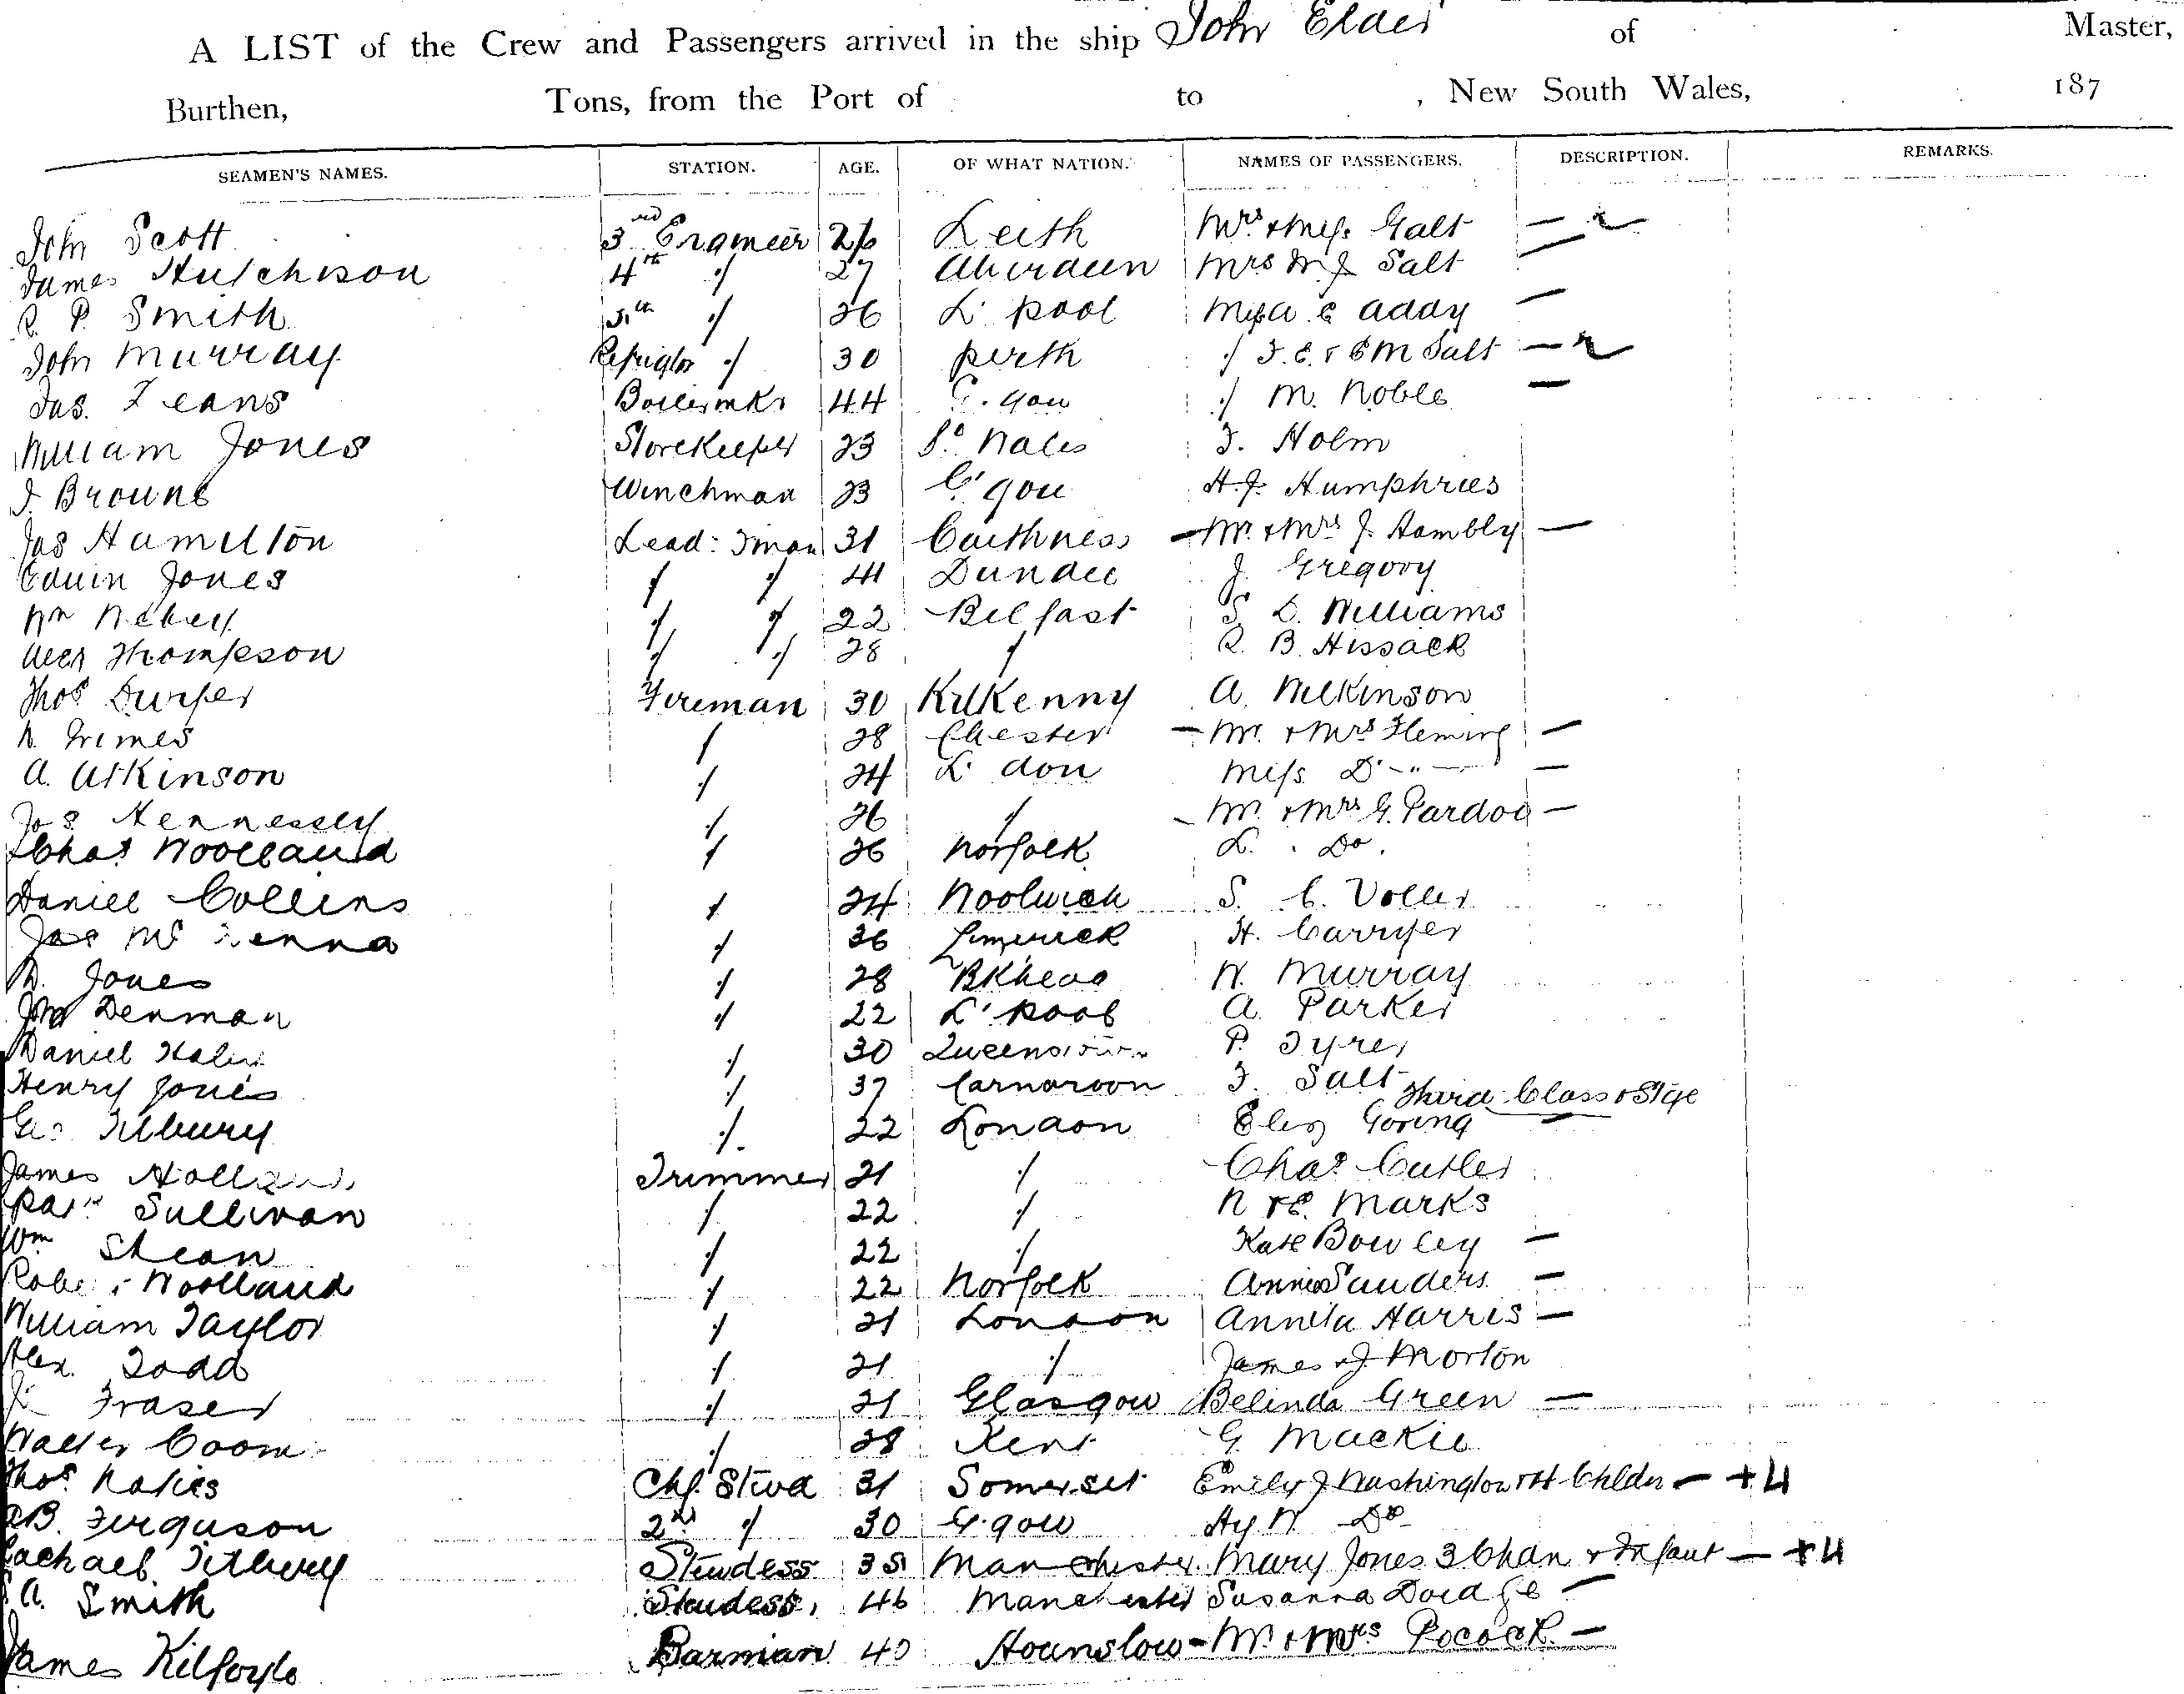 A LIST of the Crew and Passengers arrived in the ship John Elder of Master,
Burthen, Tons, from the Port of to , New South Wales, 187
SEAMEN'S NAMES. STATION. AGE. OF WHAT NATION. NAMES OF PASSENGERS. DESCRIPTION. REMARKS.
John Scott 3rd Engineer 26 Leith Mrs & Miss Galt —
James Hutchison 4th " 27 Aberdeen Mrs M J Salt —
R. P. Smith 5th " 26 L'pool Miss A E Addy —
John Murray " 30 Perth " F. E. & E M Salt —
Jas. Jeans Boilermkr 44 G.gow " M. Noble —
William Jones Storekeeper 23 So. Wales F. Holm
J. Browne Winchman 23 G'gow H. J. Humphries
Jas Hamilton Lead: Fman 31 Caithness — Mr. & Mrs J. Hambly —
Edwin Jones " " 41 Dundee J. Gregory
Wm " " 22 Belfast S. D. Williams
Alexr Thompson " " 28 " R. B. Hissack
Thos Fireman 30 Kilkenny A. Wilkinson
Grimes " 28 Chester — Mr. & Mrs Fleming —
A. Atkinson " 24 L'don Miss Do —
Jos Hennessey " 26 " — Mr. & Mrs G. Pardoe —
Chas. Woolland " 26 Norfolk L. Do.
Daniel Collins " 24 Woolwich S. C. Voller
Jas McKenna " 36 Limerick H. Carryer
D. Jones " 28 BKhead W. Murray
Jno Denman " 22 L'pool A. Parker
Daniel " 30 Queenstown P. Tyrer
Henry Jones " 37 Carnarvon F. Salt
Third Class & Stge
Geo Tilbury " 22 London Eliz Goring —
James Holland Trimmer 21 " Chas. Cutler
Patk Sullivan " 22 " N & E. Marks
Wm Shean " 22 " Kate Bowley —
Robert Woolland " 22 Norfolk Annie Sanders —
William Taylor " 21 London Annita Harris —
Alex. Todd " 21 " James J. Morton
Fraser " 21 Glasgow Belinda Green —
Walter Coom " 28 Kent G. Mackie
Thos. Chf. Stwd 31 Somerset Emily J Washington & 4 Childn — +4
Ferguson 2nd " 30 G.gow Hy W. Do
Rachael Tilbury Stewdess 35 Manchester Mary Jones 3 Chdn & Infant — +4
A. Smith Stewdess 46 Manchester Susanna Doidge —
James Kilfoyle Barman 40 Hounslow — Mr. & Mrs Pocock —